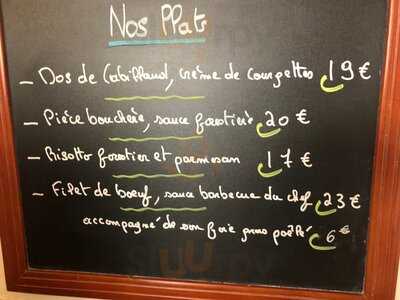 Nos Plats
- Dos de Cabillaud, crème de courgettes 19€
- Pièce bouchère, sauce forestière 20€
- Risotto forestier et parmesan 17€
- Filet de boeuf, sauce barbecue du chef 23€
accompagné de son foie gras poêlé 6€